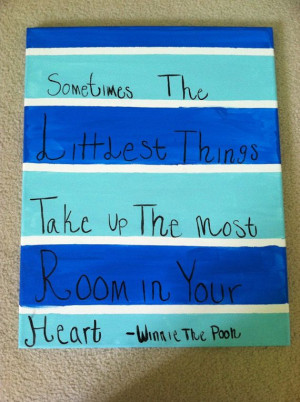 Sometimes The
Littlest Things
Take up The most
Room in Your
Heart -Winnie The Pooh